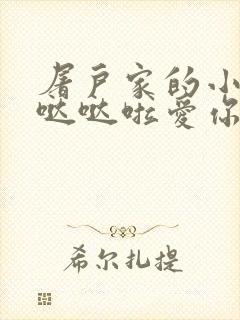 屠户家的小
哒哒啦爱你
希尔扎提